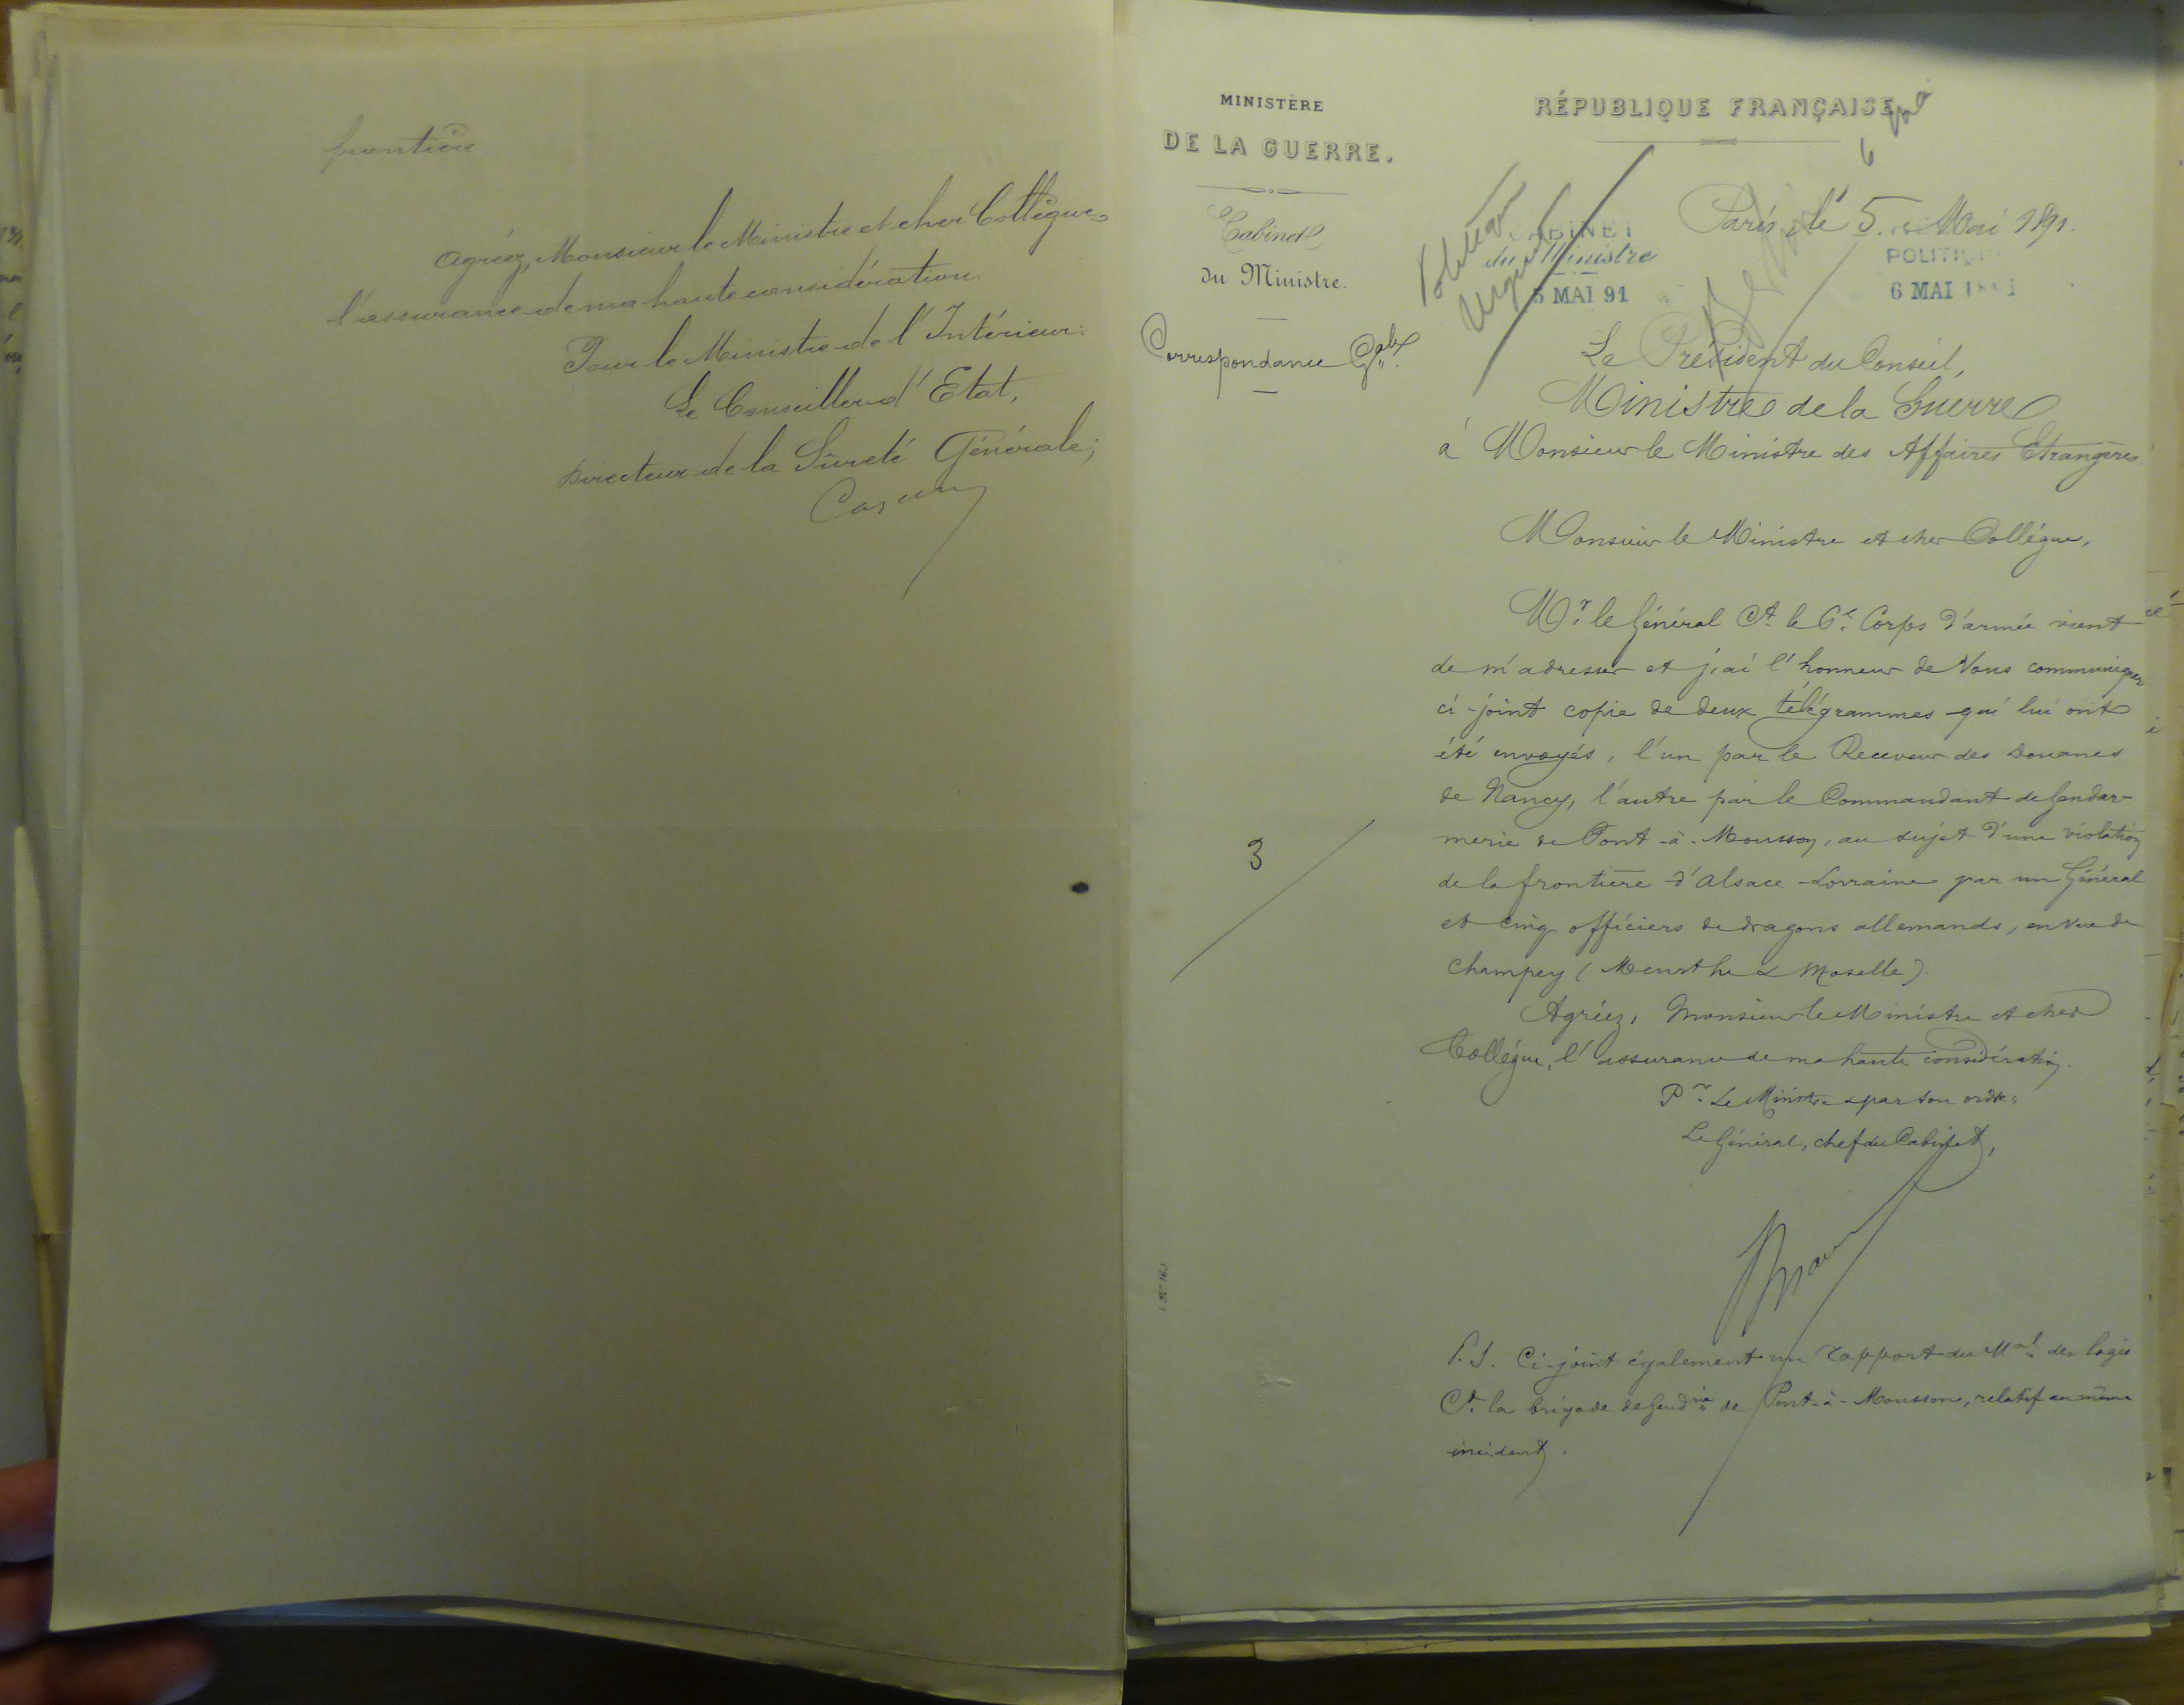 frontière
Agréez, Monsieur le Ministre et cher Collègue,
l'assurance de ma haute considération.
Pour le Ministre de l'Intérieur:
Le Conseiller d'Etat,
Directeur de la Sûreté Générale,
MINISTÈRE
DE LA GUERRE.
Cabinet
du Ministre.
Correspondance Gale
3
RÉPUBLIQUE FRANÇAISE
6
Urgent
CABINET
du Ministre
5 MAI 91
Paris, le 5 Mai 1891.
POLITIQUE
6 MAI 1891
Le Président du Conseil,
Ministre de la Guerre
à Monsieur le Ministre des Affaires Etrangères.
Monsieur le Ministre et cher Collègue,
Mr. le Général Ct. le 6e. Corps d'armée vient
de m'adresser et j'ai l'honneur de Vous communiquer
ci-joint copie de deux télégrammes qui lui ont
été envoyés, l'un par le Receveur des Douanes
de Nancy, l'autre par le Commandant de Gendar-
merie de Pont-à-Mousson, au sujet d'une violation
de la frontière d'Alsace-Lorraine par un Général
et cinq officiers de dragons allemands, en vue de
Champey (Meurthe & Moselle).
Agréez, Monsieur le Ministre et cher
Collègue, l'assurance de ma haute considération.
Pr. Le Ministre & par son ordre:
Le Général, chef du Cabinet,
P.S. Ci-joint également un rapport du Mal. des logis
Ct. la brigade de Gendie. de Pont-à-Mousson, relatif au même
incident.